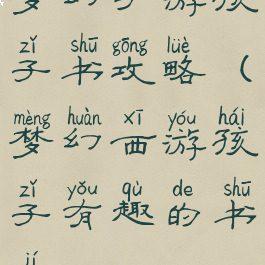 游孩
zǐ shū gōng lüè
子书攻略（
mèng huàn xī yóu hái
梦幻西游孩
zǐ yǒu qù de shū
子有趣的书
jí